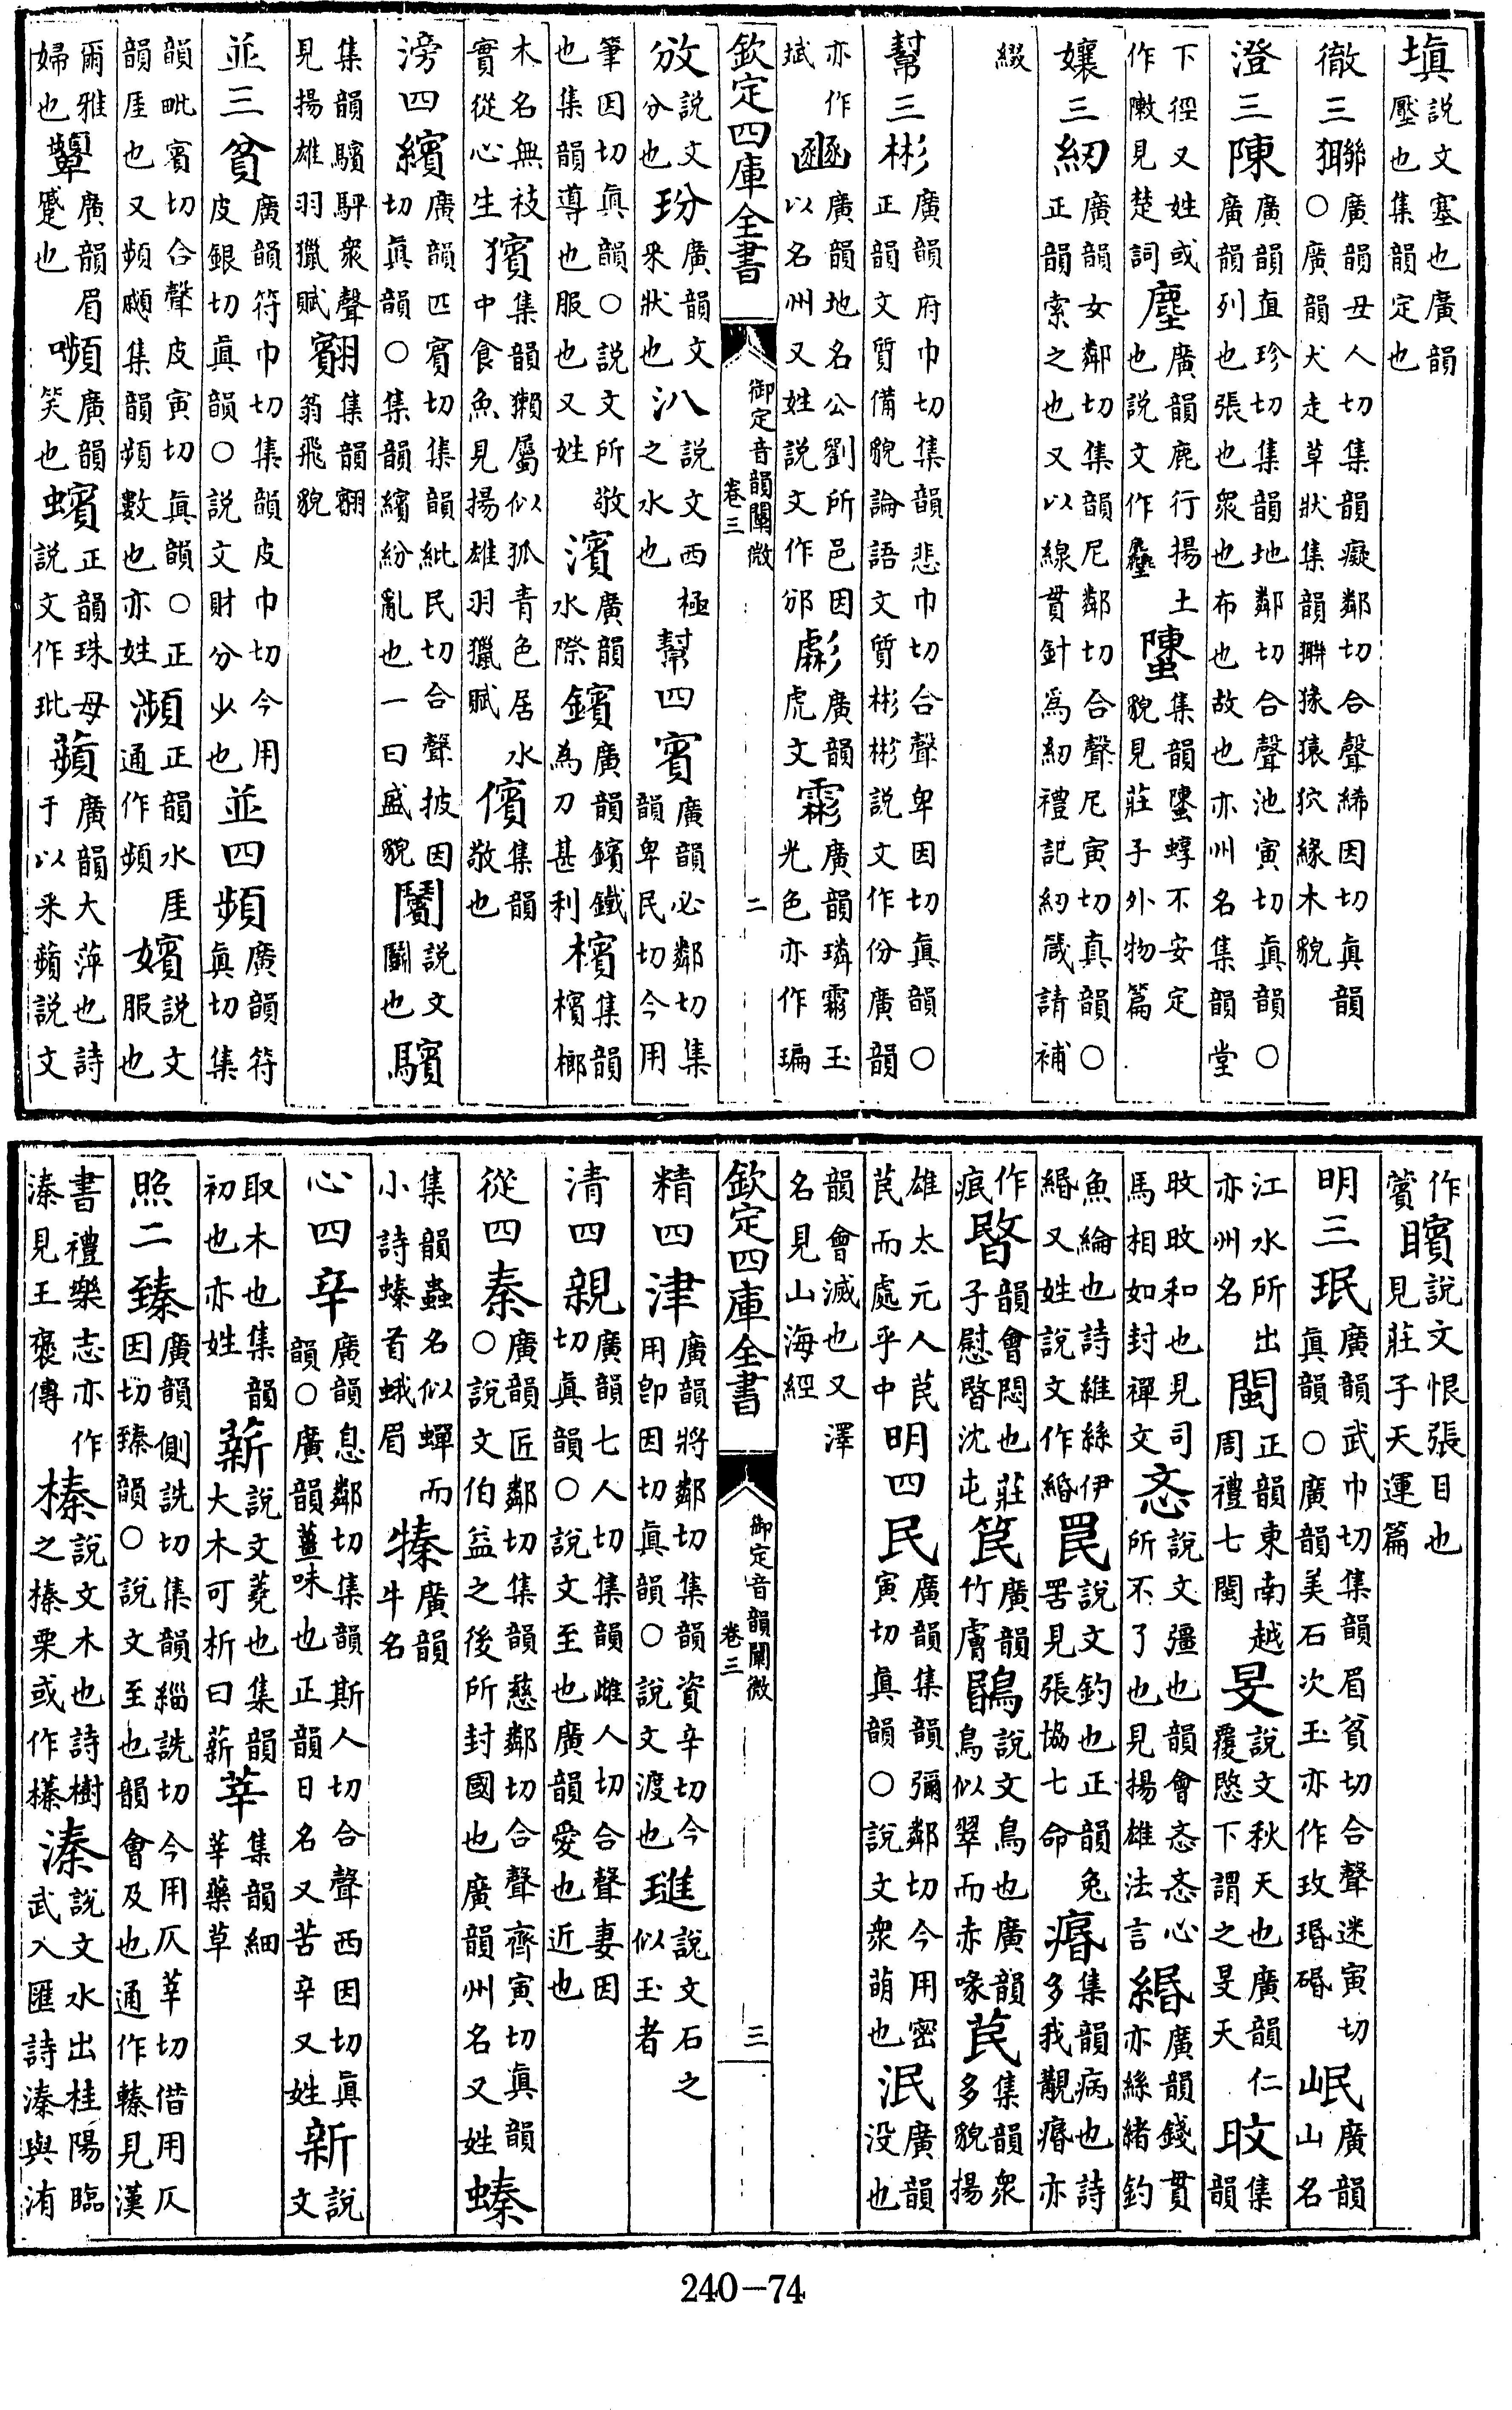 塡説文塞也廣韻壓也集韻定也
徹三𤟎廣韻丑人切集韻癡鄰切合聲絺因切眞韻○廣韻犬走草狀集韻𤟎猭猿狖緣木貌
澄三陳廣韻直珍切集韻地鄰切合聲池寅切眞韻○廣韻列也張也衆也布也故也亦州名集韻堂
下徑又姓或作敶見楚詞塵廣韻鹿行揚土也説文作𪋻螴集韻螴蜳不安定貌見莊子外物篇
孃三紉廣韻女鄰切集韻尼鄰切合聲尼寅切眞韻○正韻索之也又以線貫針爲紉禮記紉箴請補
綴
幫三彬廣韻府巾切集韻悲巾切合聲卑因切眞韻○正韻文質備貌論語文質彬彬説文作份廣韻
亦作斌豳廣韻地名公劉所邑因以名州又姓説文作邠虨廣韻虎文霦廣韻璘霦玉光色亦作璸
欽定四庫全書 御定音韻闡微 卷三 二
攽説文分也玢廣韻文采狀也汃説文西極之水也幫四賓廣韻必鄰切集韻卑民切今用
筆因切眞韻○説文所敬也集韻導也服也又姓濱廣韻水際鑌廣韻鑌鐵為刀甚利檳集韻檳榔
木名無枝實從心生獱集韻獺屬似狐青色居水中食魚見揚雄羽獵賦儐集韻敬也
滂四繽廣韻匹賓切集韻紕民切合聲披因切眞韻○集韻繽紛亂也一曰盛貌闠説文鬭也驞
集韻驞駍衆聲見揚雄羽獵賦翸集韻翸翁飛貌
並三貧廣韻符巾切集韻皮巾切今用皮銀切眞韻○説文財分少也並四頻廣韻符眞切集
韻毗賓切合聲皮寅切眞韻○正韻厓也又頻顣集韻頻數也亦姓瀕正韻水厓通作頻嬪説文服也
爾雅婦也顰廣韻眉蹙也嚬廣韻笑也蠙正韻珠母説文作玭蘋廣韻大萍也詩于以采蘋説文
作薲矉説文恨張目也見莊子天運篇
明三珉廣韻武巾切集韻眉貧切合聲迷寅切眞韻○廣韻美石次玉亦作玫瑉碈岷廣韻山名
江水所出亦州名閩正韻東南越周禮七閩旻説文秋天也廣韻仁覆愍下謂之旻天旼集韻
旼旼和也見司馬相如封禪文忞説文彊也韻會忞忞心所不了也見揚雄法言緡廣韻錢貫亦絲緒釣
魚綸也詩維絲伊緡又姓説文作緍罠説文釣也正韻兔罟見張協七命痻集韻病也詩多我覯痻亦
作痕暋韻會悶也莊子慰暋沈屯笢廣韻竹膚鴖説文鳥也廣韻鳥似翠而赤喙苠集韻衆多貌揚
雄太元人苠苠而處乎中明四民廣韻集韻彌鄰切今用密寅切眞韻○説文衆萌也泯廣韻没也
韻會滅也又澤名見山海經
欽定四庫全書 御定音韻闡微 卷三 三
精四津廣韻將鄰切集韻資辛切今用卽因切眞韻○説文渡也璡説文石之似玉者
清四親廣韻七人切集韻雌人切合聲妻因切眞韻○説文至也廣韻愛也近也
從四秦廣韻匠鄰切集韻慈鄰切合聲齊寅切眞韻○説文伯益之後所封國也廣韻州名又姓螓
集韻蟲名似蟬而小詩螓首蛾眉㮈廣韻牛名
心四辛廣韻息鄰切集韻斯人切合聲西因切眞韻○廣韻薑味也正韻日名又苦辛又姓新説文
取木也集韻初也亦姓薪説文蕘也集韻大木可析曰薪莘集韻細莘藥草
照二臻廣韻側詵切集韻緇詵切今用仄莘切借用仄因切臻韻○説文至也韻會及也通作轃見漢
書禮樂志亦作溱見王襃傳榛説文木也詩樹之榛栗或作樼溱説文水出桂陽臨武入匯詩溱與洧
240-74